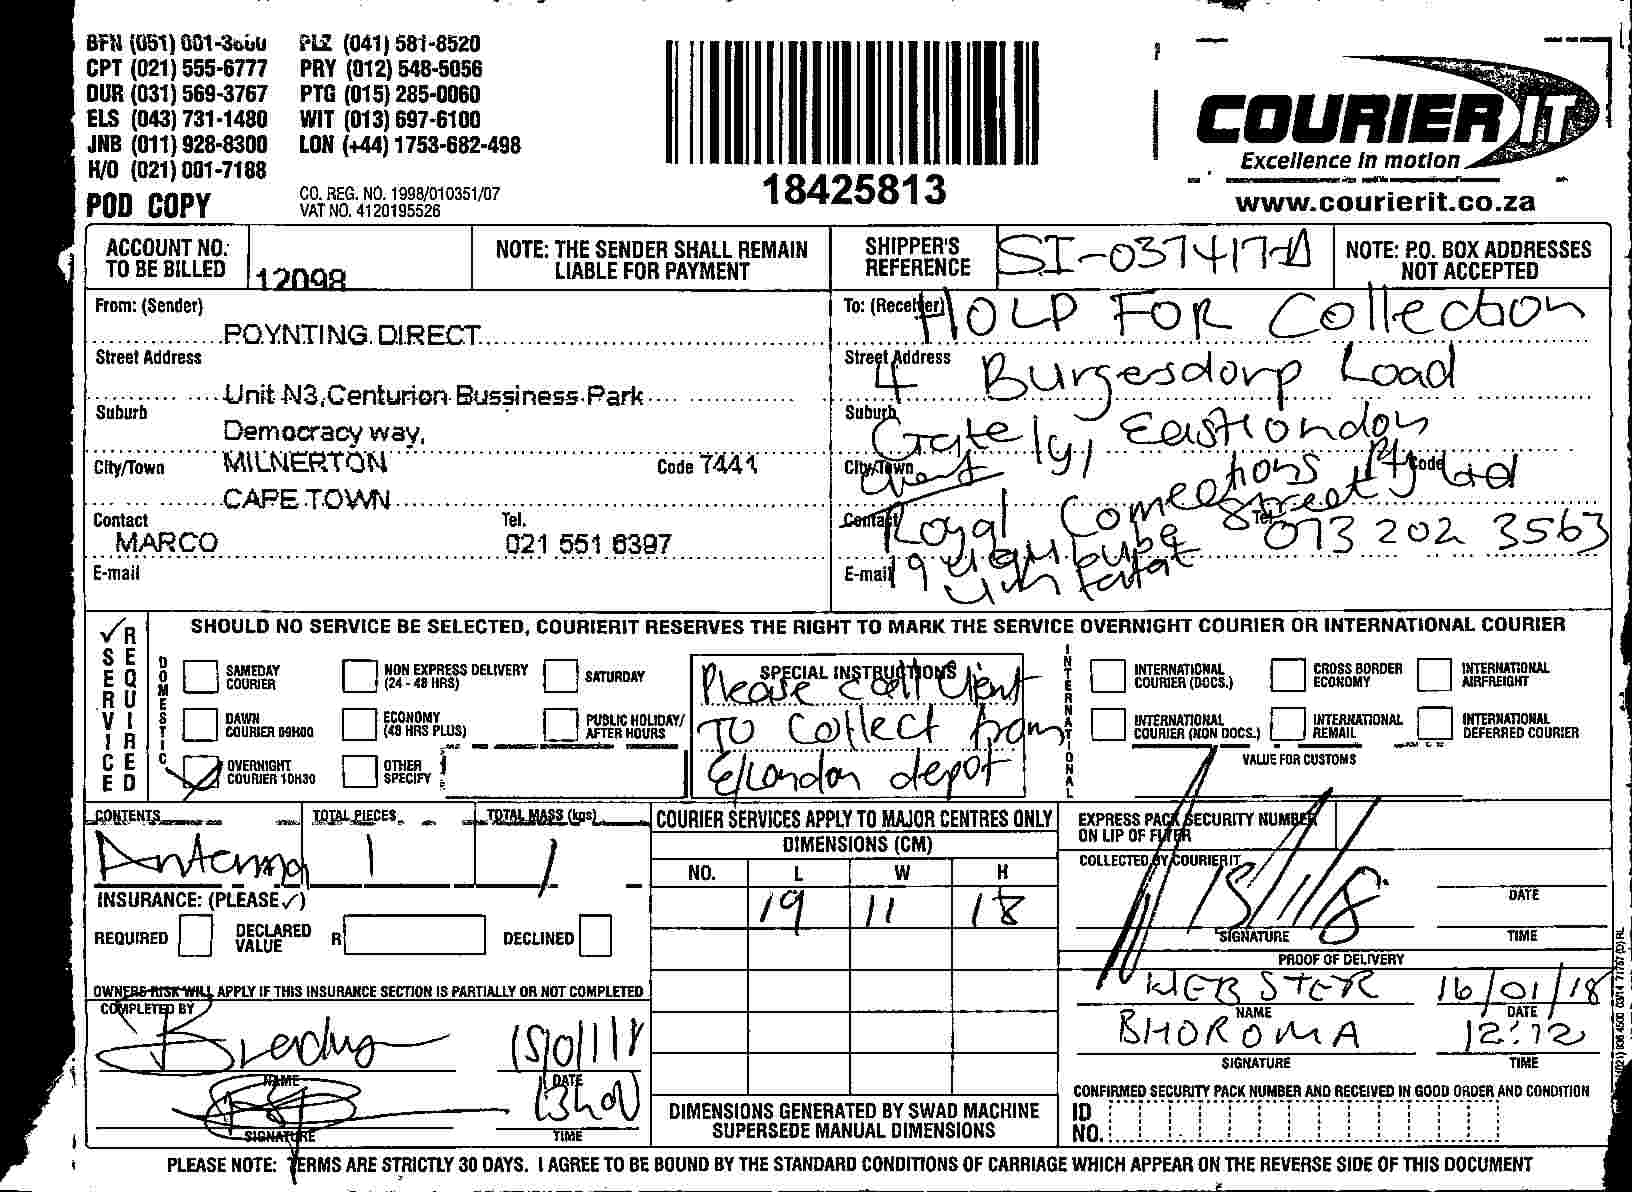 BFN (051) 001-3660 PLZ (041) 581-8520
CPT (021) 555-6777 PRY (012) 548-5056
DUR (031) 569-3767 PTG (015) 285-0060
ELS (043) 731-1480 WIT (013) 697-6100
JNB (011) 928-8300 LON (+44) 1753-682-498
H/O (021) 001-7188
POD COPY
CO. REG. NO. 1998/010351/07
VAT NO. 4120195526
18425813
COURIER IT
Excellence in motion
www.courierit.co.za
ACCOUNT NO. TO BE BILLED 12098
NOTE: THE SENDER SHALL REMAIN LIABLE FOR PAYMENT
SHIPPER'S REFERENCE SI-037417-A
NOTE: P.O. BOX ADDRESSES NOT ACCEPTED
From: (Sender)
POYNTING DIRECT
Street Address
Unit N3, Centurion Bussiness Park
Suburb
Democracy way,
City/Town MILNERTON Code 7441
CAPE TOWN
Contact Tel.
MARCO 021 551 6397
E-mail
To: (Receiver) HOLD FOR Collection
Street Address 4 Burgesdorp Load
Suburb Gately, Eastlondon
City/Town Client Code
Contact Royal Connections Pty Ltd
Street
Tel. 073 202 3563
E-mail 19
SERVICE REQUIRED
SHOULD NO SERVICE BE SELECTED, COURIERIT RESERVES THE RIGHT TO MARK THE SERVICE OVERNIGHT COURIER OR INTERNATIONAL COURIER
DOMESTIC
SAMEDAY COURIER
NON EXPRESS DELIVERY (24 - 48 HRS)
SATURDAY
DAWN COURIER 09H00
ECONOMY (48 HRS PLUS)
PUBLIC HOLIDAY/ AFTER HOURS
OVERNIGHT COURIER 10H30
OTHER SPECIFY
SPECIAL INSTRUCTIONS
Please call Client
TO Collect from
E/London depot
INTERNATIONAL
INTERNATIONAL COURIER (DOCS.)
CROSS BORDER ECONOMY
INTERNATIONAL AIRFREIGHT
INTERNATIONAL COURIER (NON DOCS.)
INTERNATIONAL REMAIL
INTERNATIONAL DEFERRED COURIER
VALUE FOR CUSTOMS
CONTENTS TOTAL PIECES TOTAL MASS (kgs)
Antenna 1 1
INSURANCE: (PLEASE ✓)
REQUIRED DECLARED VALUE R DECLINED
OWNERS RISK WILL APPLY IF THIS INSURANCE SECTION IS PARTIALLY OR NOT COMPLETED
COMPLETED BY
15/01/18
NAME DATE
13h00
SIGNATURE TIME
COURIER SERVICES APPLY TO MAJOR CENTRES ONLY
DIMENSIONS (CM)
NO. L W H
19 11 18
DIMENSIONS GENERATED BY SWAD MACHINE
SUPERSEDE MANUAL DIMENSIONS
EXPRESS PACK SECURITY NUMBER
ON LIP OF FLYER
COLLECTED BY COURIERIT
15/1/18
DATE
SIGNATURE TIME
PROOF OF DELIVERY
WEBSTER 16/01/18
NAME DATE
BHOROMA 12:12
SIGNATURE TIME
CONFIRMED SECURITY PACK NUMBER AND RECEIVED IN GOOD ORDER AND CONDITION
ID NO.
PLEASE NOTE: TERMS ARE STRICTLY 30 DAYS. I AGREE TO BE BOUND BY THE STANDARD CONDITIONS OF CARRIAGE WHICH APPEAR ON THE REVERSE SIDE OF THIS DOCUMENT